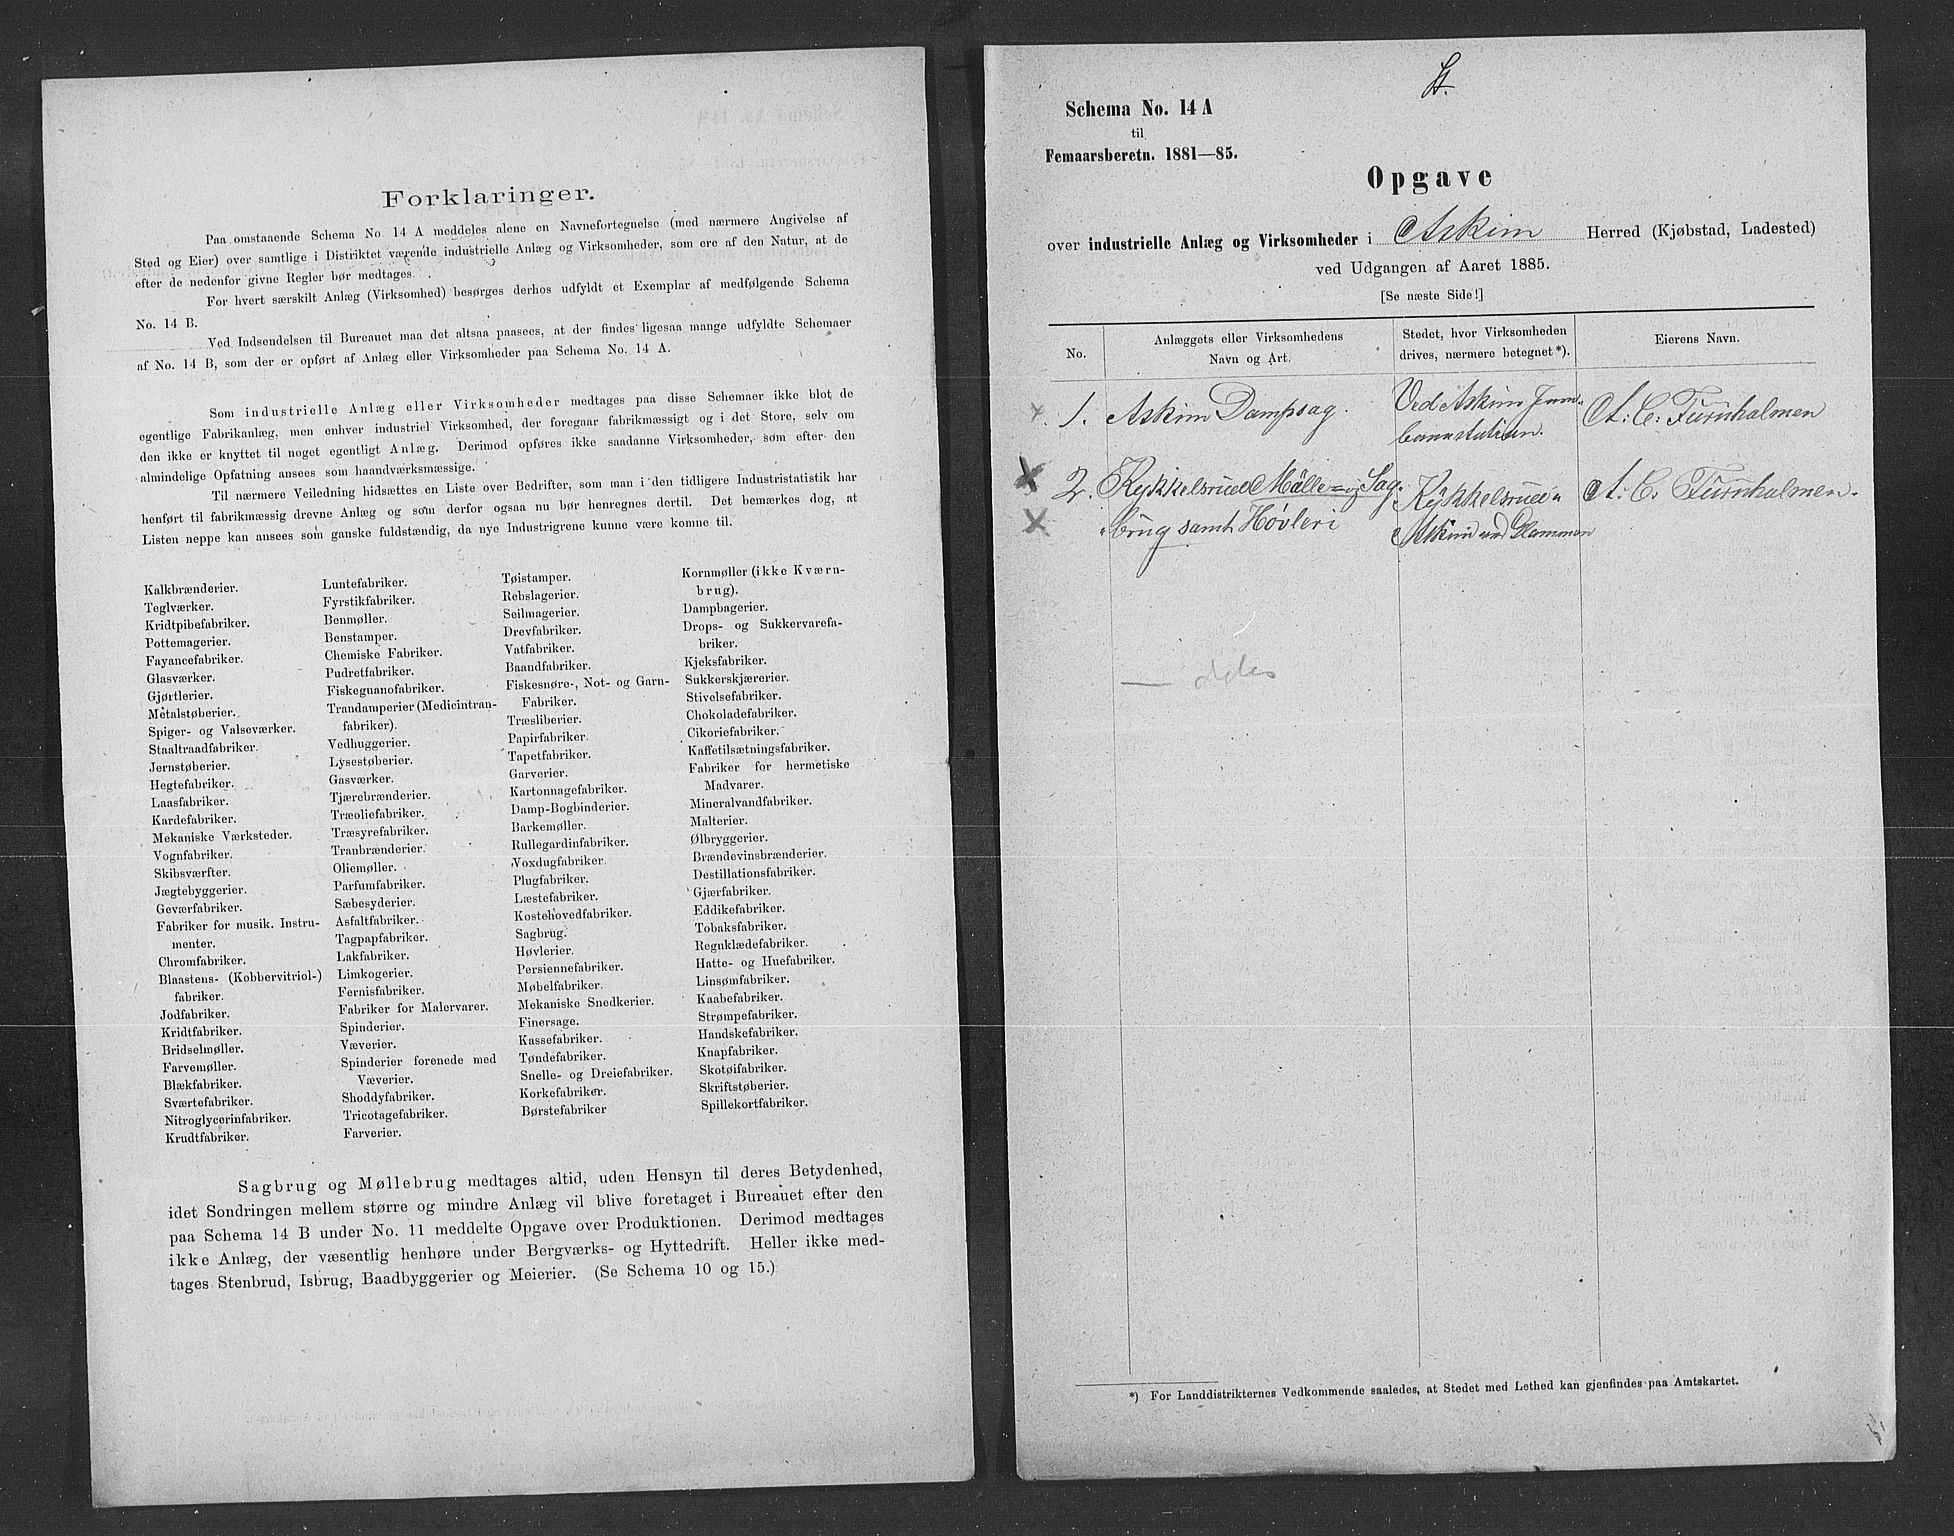 Forklaringer.
Paa omstaaende Schema No. 14 A meddeles alene en Navnefortegnelse (med nærmere Angivelse af
Sted og Eier) over samtlige i Distriktet værende industrielle Anlæg og Virksomheder, som ere af den Natur, at de
efter de nedenfor givne Regler bør medtages.
For hvert særskilt Anlæg (Virksomhed) besørges derhos udfyldt et Exemplar af medfølgende Schema
No. 14 B.
Ved Indsendelsen til Bureauet maa det altsaa paasees, at der findes ligesaa mange udfyldte Schemaer
af No. 14 B, som der er opført af Anlæg eller Virksomheder paa Schema No. 14 A.
Som industrielle Anlæg eller Virksomheder medtages paa disse Schemaer ikke blot de
egentlige Fabrikanlæg, men enhver industriel Virksomhed, der foregaar fabrikmæssigt og i det Store, selv om
den ikke er knyttet til noget egentligt Anlæg. Derimod opføres ikke saadanne Virksomheder, som efter den
almindelige Opfatning ansees som haandværksmæssige.
Til nærmere Veiledning hidsættes en Liste over Bedrifter, som man i den tidligere Industristatistik har
henført til fabrikmæssig drevne Anlæg og som derfor ogsaa nu bør henregnes dertil. Det bemærkes dog, at
Listen neppe kan ansees som ganske fuldstændig, da nye Industrigrene kunne være komne til.
Kalkbrænderier.
Teglværker.
Kridtpibefabriker.
Pottemagerier.
Fayancefabriker.
Glasværker.
Gjørtlerier.
Metalstøberier.
Spiger- og Valseværker.
Staaltraadfabriker.
Jernstøberier.
Hegtefabriker.
Laasfabriker.
Kardefabriker.
Mekaniske Værksteder.
Vognfabriker.
Skibsværfter.
Jægtebyggerier.
Geværfabriker.
Fabriker for musik. Instru-
menter.
Chromfabriker.
Blaastens- (Kobbervitriol-)
fabriker.
Jodfabriker.
Kridtfabriker.
Bridselmøller.
Farvemøller.
Blækfabriker.
Sværtefabriker.
Nitroglycerinfabriker.
Krudtfabriker.
Luntefabriker.
Fyrstikfabriker.
Benmøller.
Benstamper.
Chemiske Fabriker.
Pudretfabriker.
Fiskeguanofabriker.
Trandamperier (Medicintran-
fabriker).
Vedhuggerier.
Lysestøberier.
Gasværker.
Tjærebrænderier.
Træoliefabriker.
Træsyrefabriker.
Tranbrænderier.
Oliemøller.
Parfumfabriker.
Sæbesyderier.
Asfaltfabriker.
Tagpapfabriker.
Lakfabriker.
Limkogerier.
Fernisfabriker.
Fabriker for Malervarer.
Spinderier.
Væverier.
Spinderier forenede med
Væverier.
Shoddyfabriker.
Tricotagefabriker.
Farverier.
Tøistamper.
Rebslagerier.
Seilmagerier.
Drevfabriker.
Vatfabriker.
Baandfabriker.
Fiskesnøre-, Not- og Garn-
Fabriker.
Træsliberier.
Papirfabriker.
Tapetfabriker.
Garverier.
Kartonnagefabriker.
Damp-Bogbinderier.
Barkemøller.
Rullegardinfabriker.
Voxdugfabriker
Plugfabriker.
Læstefabriker.
Kostehovedfabriker.
Sagbrug.
Høvlerier.
Persiennefabriker.
Møbelfabriker.
Mekaniske Snedkerier.
Finersage.
Kassefabriker.
Tøndefabriker.
Snelle- og Dreiefabriker.
Korkefabriker.
Børstefabriker
Kornmøller (ikke Kværn-
brug).
Dampbagerier.
Drops- og Sukkervarefa-
briker.
Kjeksfabriker.
Sukkerskjærerier.
Stivelsefabriker.
Chokoladefabriker.
Cikoriefabriker.
Kaffetilsætningsfabriker.
Fabriker for hermetiske
Madvarer.
Mineralvandfabriker.
Malterier.
Ølbryggerier.
Brændevinsbrænderier.
Destillationsfabriker.
Gjærfabriker.
Eddikefabriker.
Tobaksfabriker.
Regnklædefabriker.
Hatte- og Huefabriker.
Linsømfabriker.
Kaabefabriker.
Strømpefabriker.
Handskefabriker.
Knapfabriker.
Skotøifabriker.
Skriftstøberier.
Spillekortfabriker.
Sagbrug og Møllebrug medtages altid, uden Hensyn til deres Betydenhed,
idet Sondringen mellem større og mindre Anlæg vil blive foretaget i Bureauet efter den
paa Schema 14 B under No. 11 meddelte Opgave over Produktionen. Derimod medtages
ikke Anlæg, der væsentlig henhøre under Bergværks- og Hyttedrift. Heller ikke med-
tages Stenbrud, Isbrug, Baadbyggerier og Meierier. (Se Schema 10 og 15.)
Schema No. 14 A
til
Femaarsberetn. 1881—85.
Opgave
over industrielle Anlæg og Virksomheder i Askim Herred (Kjøbstad, Ladested)
ved Udgangen af Aaret 1885.
[Se næste Side!]
No.
Anlæggets eller Virksomhedens
Navn og Art.
Stedet, hvor Virksomheden
drives, nærmere betegnet*).
Eierens Navn.
1. Askim Dampsag. Ved Askim Jern- A. C. Furuholmen
banestation.
2. Kykkelsrud Mølle- og Sag- Kykkelsrud i A. C. Furuholmen.
brug samt Høvleri Askim ved Glommen
*) For Landdistrikternes Vedkommende saaledes, at Stedet med Lethed kan gjenfindes paa Amtskartet.